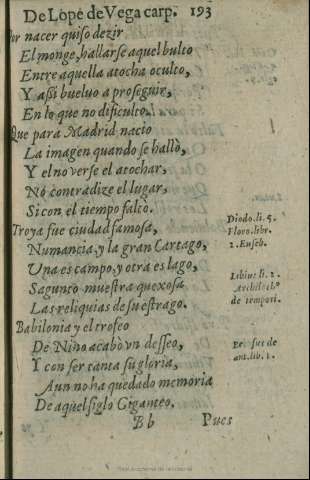 De Lope de Vega carp. 193
Por nacer quiso dezir
El monge, hallarse aquel bulto
Entre aquella atocha oculto,
Y assi bueluo a proseguir,
En lo que no dificulto.
Que para Madrid nacio
La imagen quando se hallò,
Y el no verse el atochar,
No contradize el lugar,
Si con el tiempo faltò.
Troya fue ciudad famosa,
Numancia, y la gran Cartago,
Una es campo, y otra es lago,
Sagunto muestra quexosa
Las reliquias de su estrago.
Babilonia y el trofeo
De Nino acabò vn desseo,
Y con ser tanta su gloria,
Aun no ha quedado memoria
De aquel siglo Giganteo.
Diodo. li. 5.
Floro. libr.
2. Euseb.
Libius li. 2.
de tempori.
ant. lib. 1.
Bb Pues